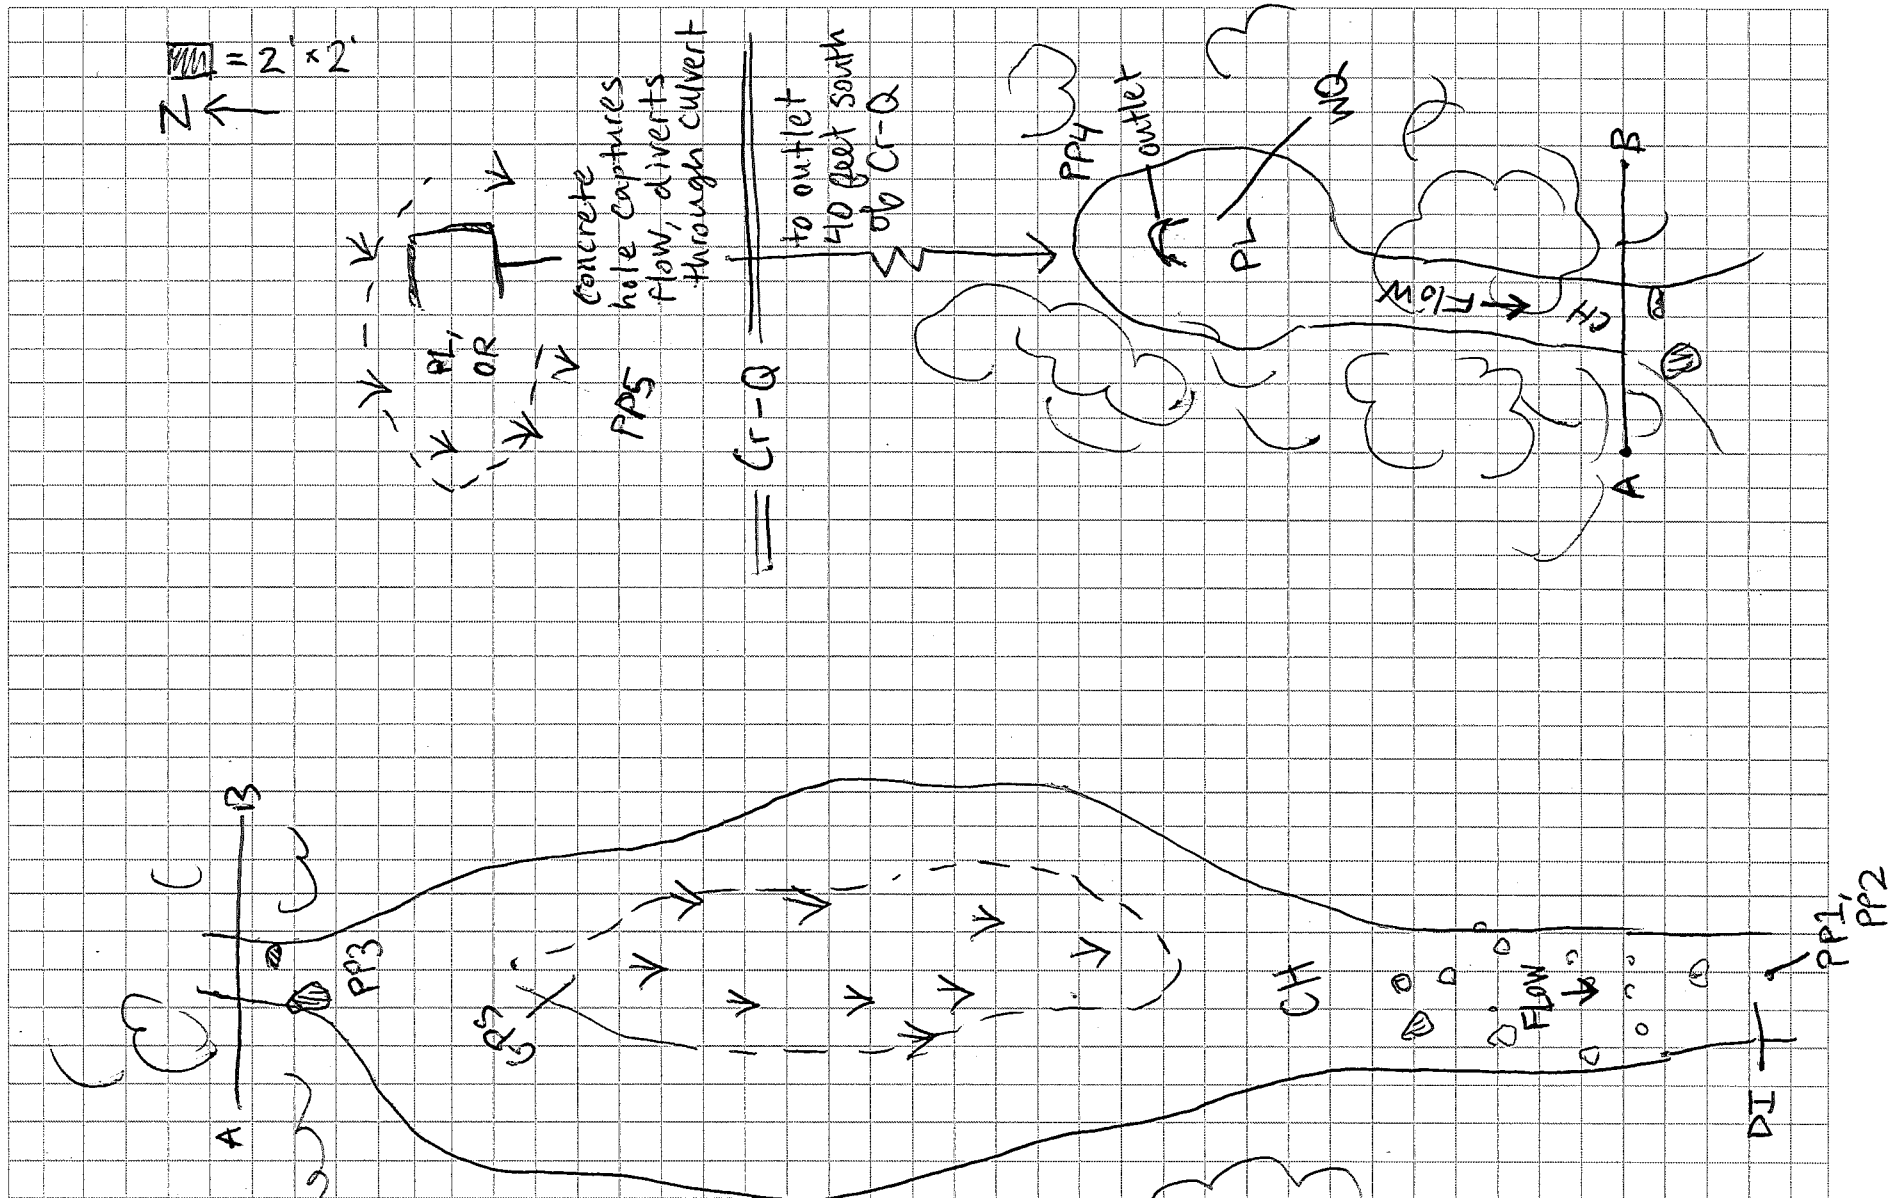 = 2' × 2'
N
PL,
OR
PP5
Concrete
hole captures
flow, diverts
through culvert
Cr-Q
to outlet
40 feet south
of Cr-Q
PP4
outlet
WQ
PL
Flow
CH
A
B
A
B
PP3
CH
FLOW
DI
PP1,
PP2